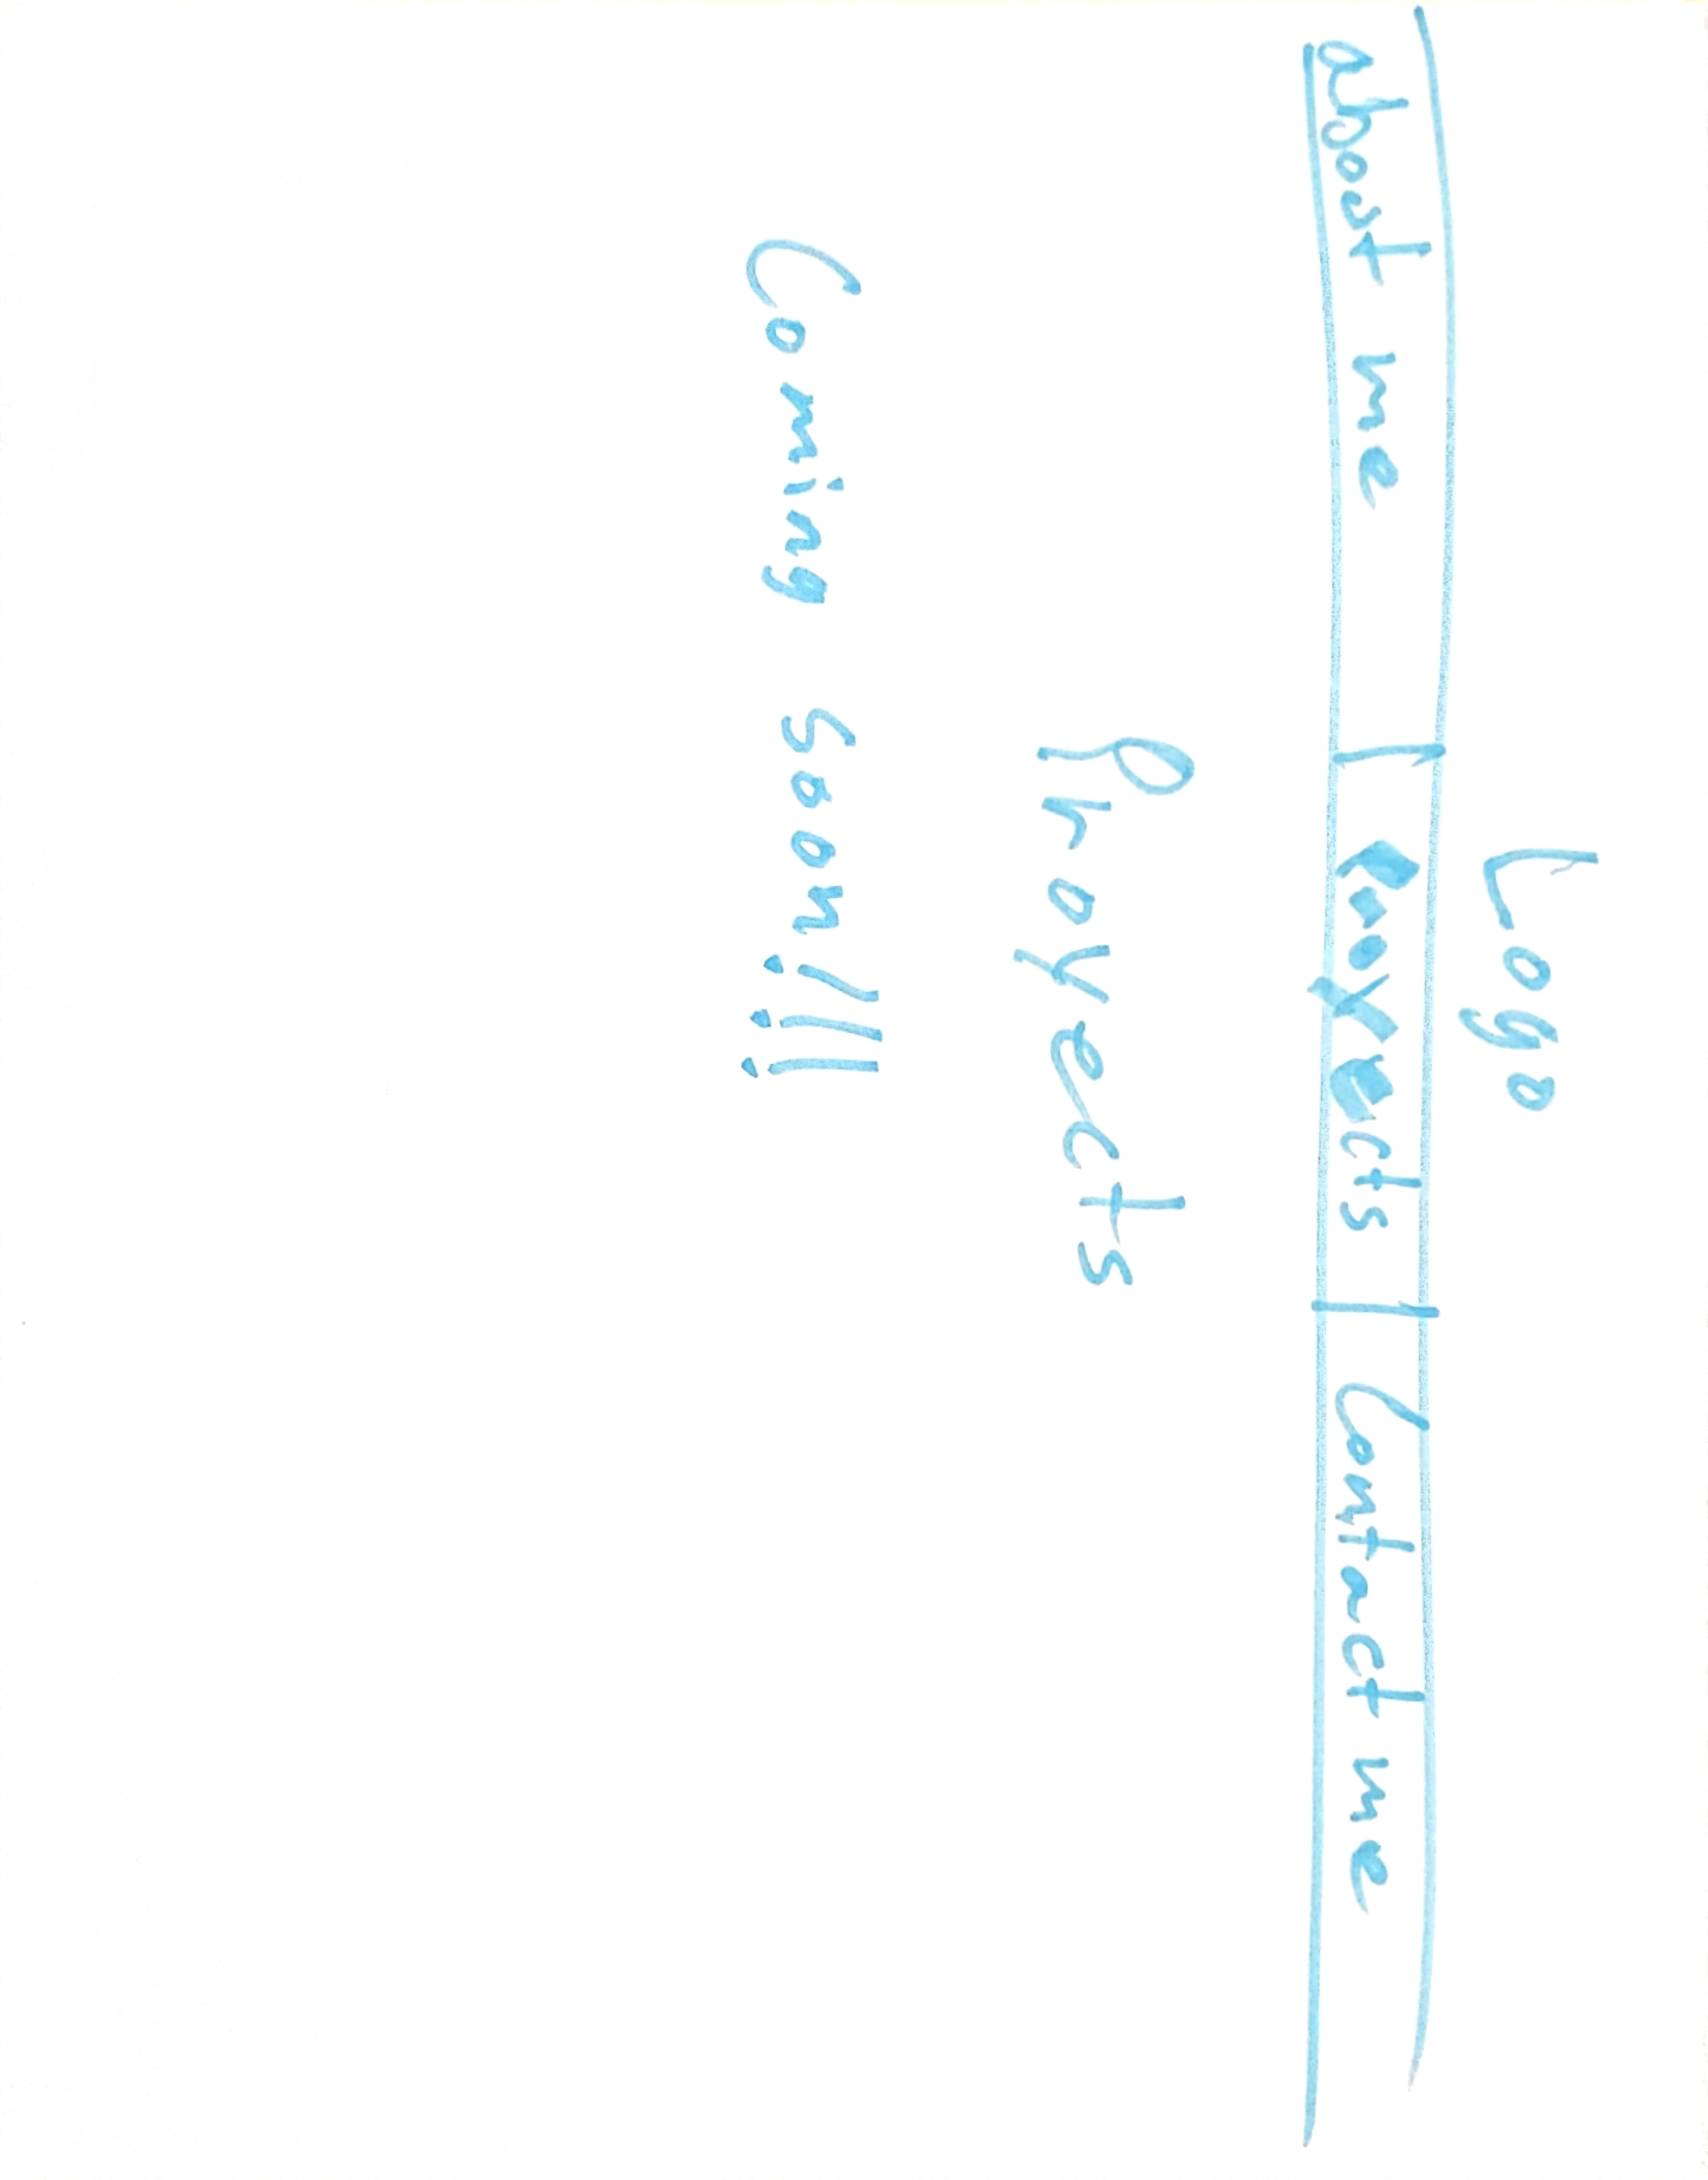 Logo
about me | Proyects | Contact me
Proyects
Coming soon!!!